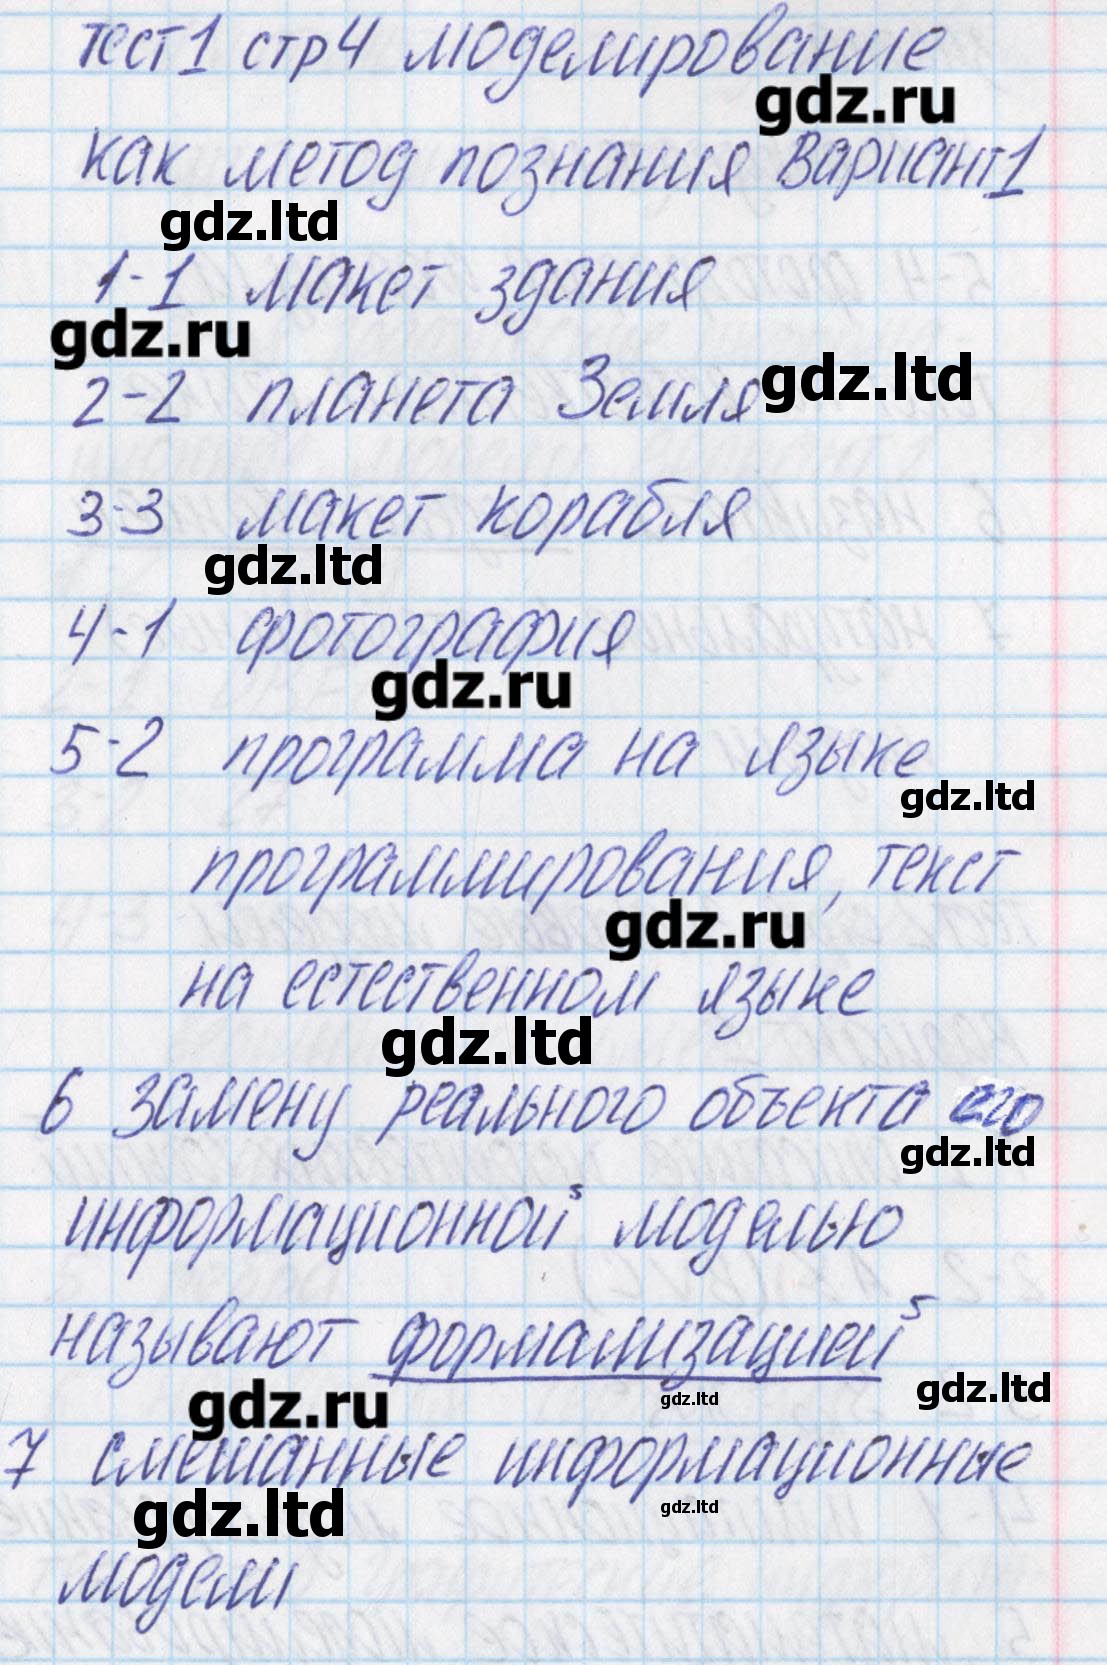 тест1 стр4 моделирование
gdz.ru
как метод познания Вариант1
gdz.ltd
1-1 макет здания
gdz.ru
2-2 планета Земля
gdz.ltd
3-3 макет корабля
gdz.ltd
4-1 фотография
gdz.ru
5-2 программа на языке
gdz.ltd
программирования, текст
gdz.ru
на естественном языке
gdz.ltd
6 замену реального объекта его
gdz.ltd
информационной моделью
называют формализацией
gdz.ltd
gdz.ltd
gdz.ru
7 смешанные информационные
gdz.ltd
gdz.ltd
модели